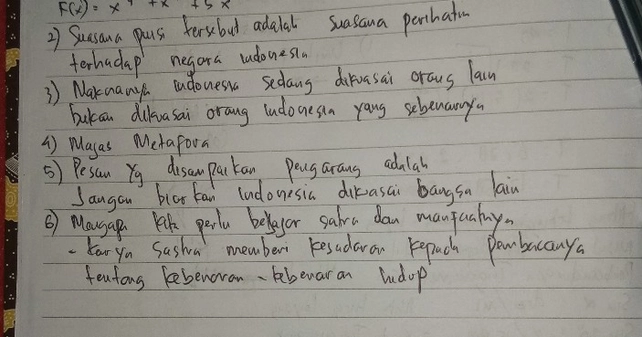 F(x) = x
2) Suasana puisi tersebut adalah suasana perihatin
terhadap negara indonesia
3) Maknanya indonesia sedang dikuasai orang lain
bukan dikuasai orang indonesia yang sebenarnya
4) Majas Metafora
5) Pesan yg disampaikan pengarang adalah
Jangan biarkan indonesia dikuasai bangsa lain
6) Mengapa kita perlu belajar satra dan manfaatnya
- karya sastra memberi kesadaran kepada pembacanya
tentang kebenaran - kebenaran hidup